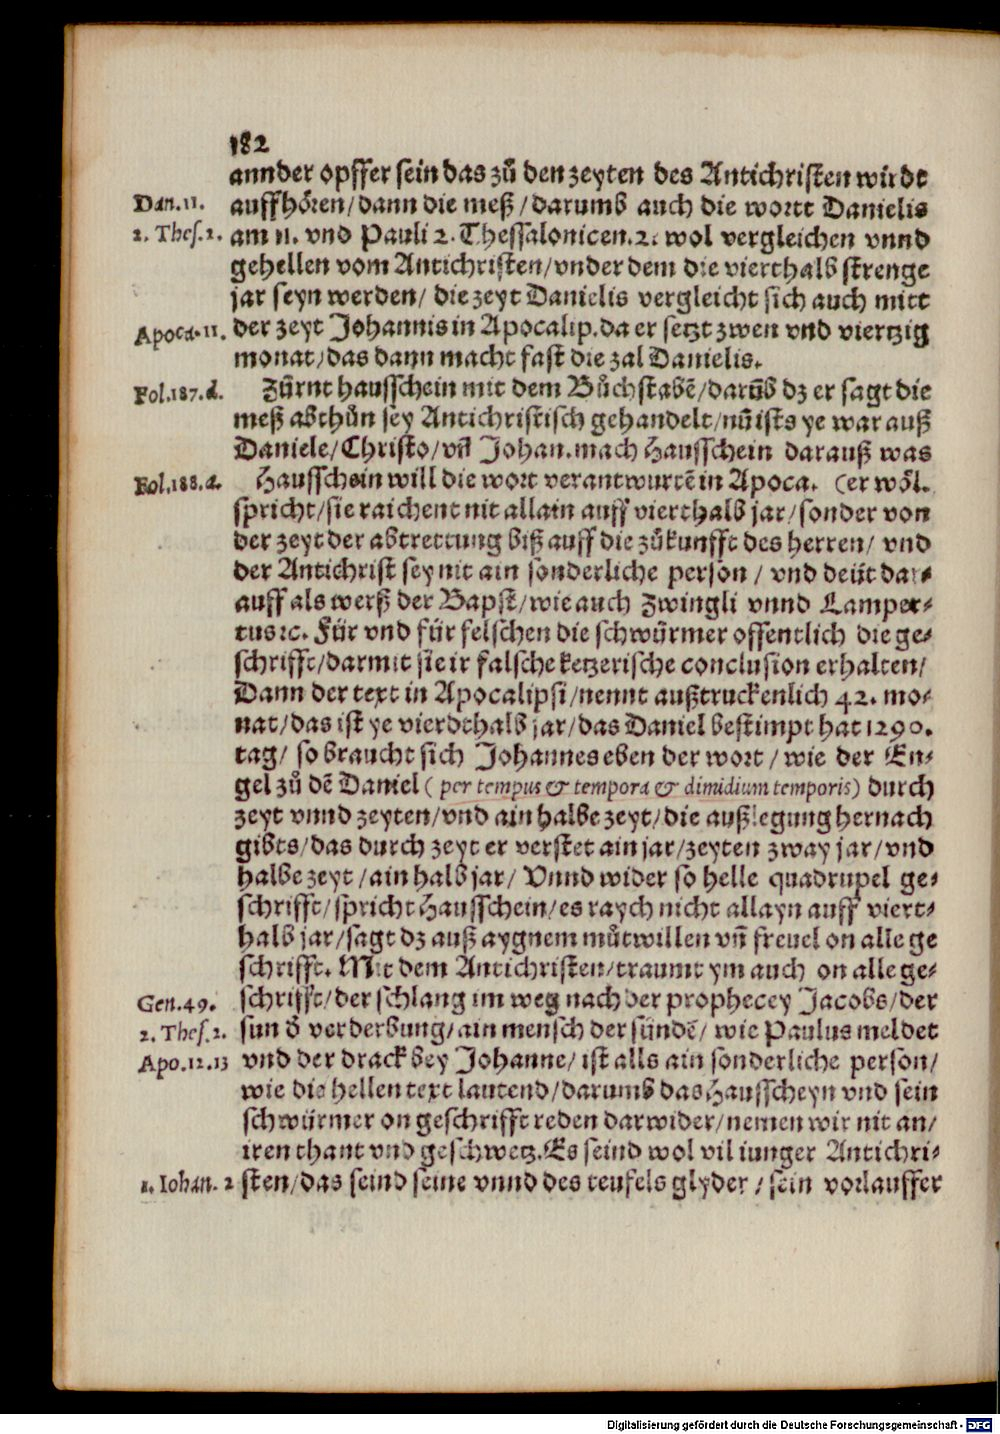 182
annder opffer sein das zů den zeyten des Antichristen wirdt
Dan.11. auffhören/dann die meß/darumb auch die wort Danielis
2. Thes.2. am 11. vnd Pauli 2. Thessalonicen.2. wol vergleichen vnnd
gehellen vom Antichristen/vnder dem die vierthalb strenge
jar seyn werden/ die zeyt Danielis vergleicht sich auch mitt
Apoca.11. der zeyt Johannis in Apocalip.da er setzt zwen vnd viertzig
monat/das dann macht fast die zal Danielis.
Fol.187.d. Zürnt hausschein mit dem Bůchstabē/darūb dz er sagt die
meß abthůn sey Antichristisch gehandelt/nū ists ye war auß
Daniele/Christo/vñ Johan.mach Hausschein darauß was
Fol.188.a. Hausschein will die wort verantwurtē in Apoca. (er wöl.
spricht/sie raichent nit allain auff vierthalb jar/sonder von
der zeyt der abtrettung biß auff die zůkunfft des herren/ vnd
der Antichrist sey nit ain sonderliche person / vnd deüt dar-
auff als werß der Bapst/wie auch Zwingli vnnd Lamper-
tus ꝛc. Für vnd für felschen die schwürmer offentlich die ge-
schrifft/darmit sie ir falsche ketzerische conclusion erhalten/
Dann der text in Apocalipsi/nennt außtruckenlich 42. mo-
nat/das ist ye vierdthalb jar/das Daniel bestimpt hat 1290.
tag/ so braucht sich Johannes eben der wort / wie der En-
gel zů dē Daniel ( per tempus & tempora & dimidium temporis) durch
zeyt vnnd zeyten/vnd ain halbe zeyt/die außlegung hernach
gibts/das durch zeyt er verstet ain jar/zeyten zway jar/vnd
halbe zeyt /ain halb jar/ Vnnd wider so helle quadrupel ge-
schrifft/spricht Hausschein/es raych nicht allayn auff viert-
halb jar/sagt dz auß aygnem můtwillen vñ freuel on alle ge
schrifft. Mit dem Antichristen/traumt ym auch on alle ge-
Gen.49. schrifft/der schlang im weg nach der prophecey Jacobs/der
2. Thes.2. sun d̄ verderbung/ain mensch der sündē/ wie Paulus meldet
Apo.12.13 vnd der drack bey Johanne/ ist alls ain sonderliche person/
wie die hellen text lautend/darumb das Hausscheyn vnd sein
schwürmer on geschrifft reden darwider/nemen wir nit an/
iren thant vnd geschwetz.Es seind wol vil iunger Antichri-
1. Iohan. 2 sten/das seind seine vnnd des teufels glyder / sein vorlauffer
Digitalisierung gefördert durch die Deutsche Forschungsgemeinschaft - DFG